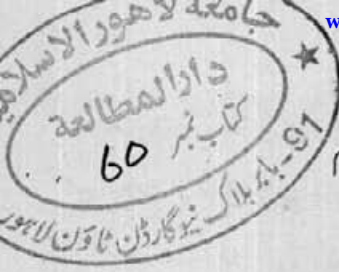 جامعہ لاہور الاسلامیہ
دارالمطالعة
کتاب نمبر 60
91-بابر بلاک نیو گارڈن ٹاؤن لاہور
w